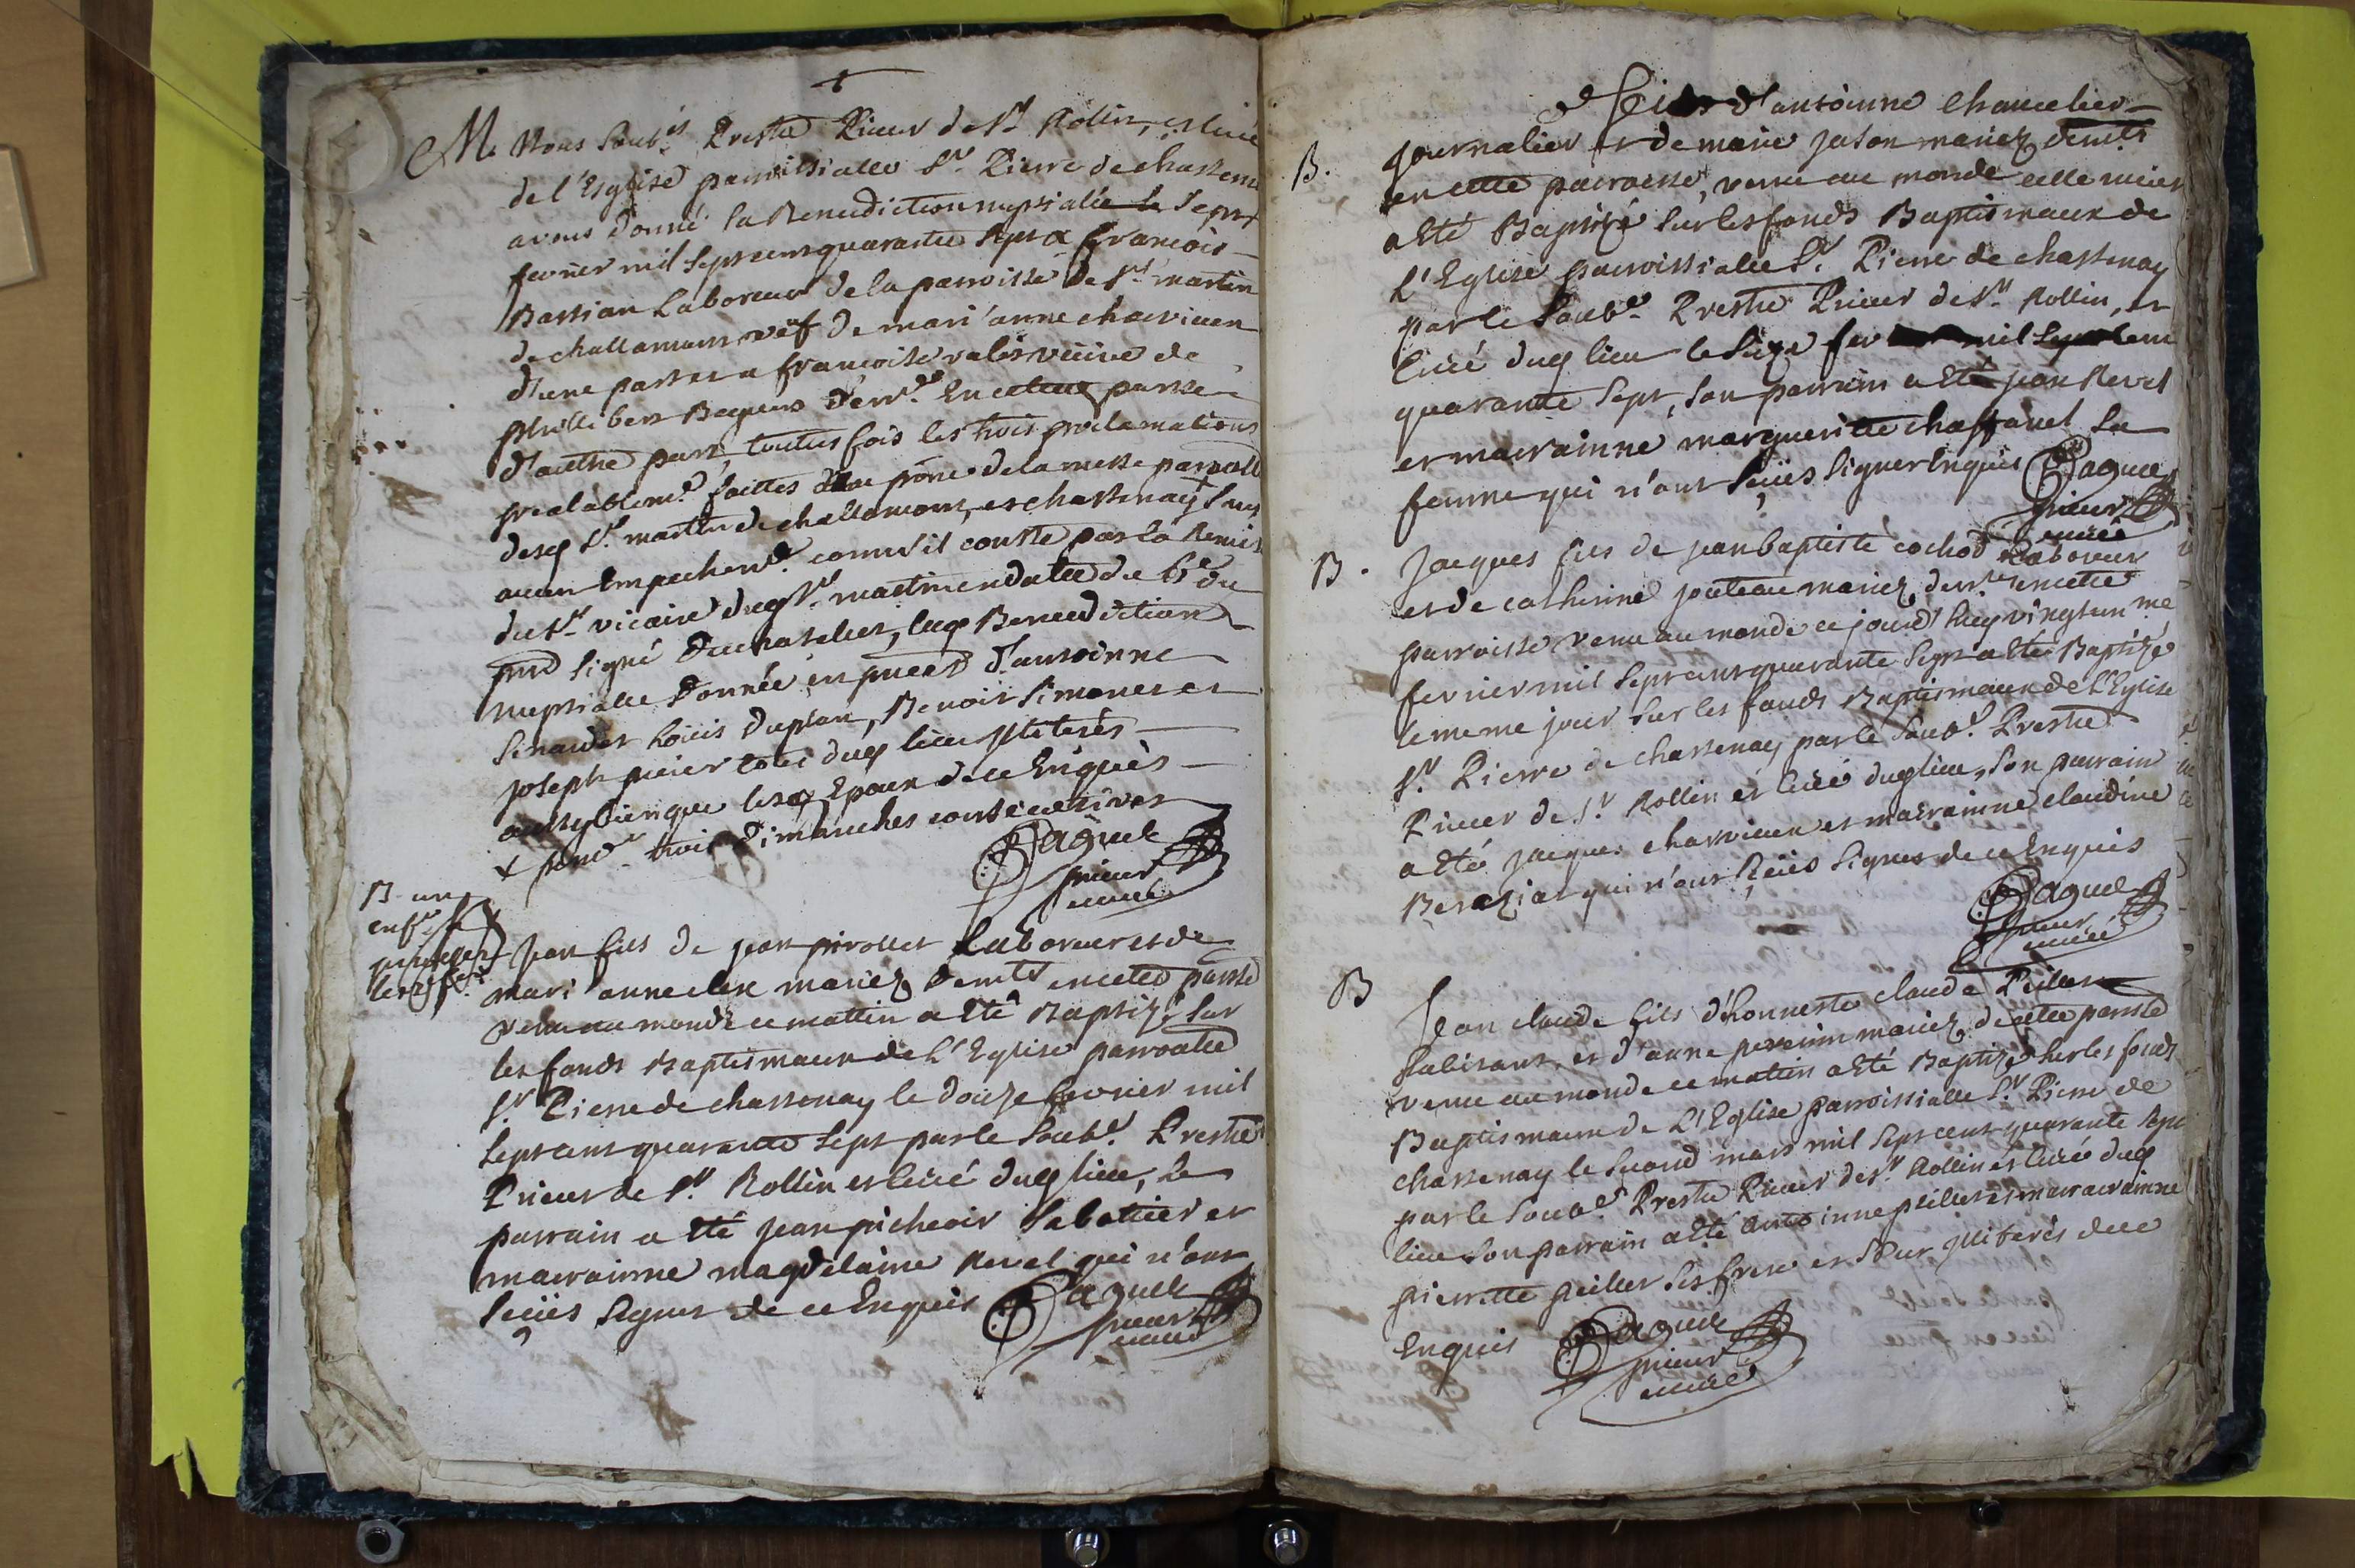 M. Nous Soub.és Prestre Prieur de S.t Rolin, et curé
de l'Esglise parroissialle S.t Pierre de chastenay
avons donné la Benediction nuptialle le sept
fevrier mil sept cent quarante sept a francois
Bassian Laboreur de la parroisse de S.t martin
de challamont vëf de mari'anne charvieux
d'une part et a francoise valis veüive de
phillibert Baqueus dem.t En cette parsse
d'autre part, toutes fois les trois proclamations
prealablem.t faittes au prone de la messe parralle
desq S.t martin de challamont, et chastenay + sans
aucun Empechem.t comm'il conste par la Remise
du S.r vicaire duq S.t martin en datte du 6.e du
pnt signé Duchatelier, laq Benediction
nuptialle donnée en pnces d'antoinne
Simandet Loüis duplan, Benoit Simonet et
joseph prier tous duq lieu Illiterés
aussy bien que lesq Epoux de ce Enquis
+ pend.t trois dimanches consecutives
Paguel
prieur
curé
B un
enf.t
jean fils de jean pirollet Laboreur et de
mari'anne clex mariez demts en cette parsse
venu au monde ce mattin a Eté Baptizé Sur
les fonds Baptismaux de L'Eglise parroalle
S.t Pierre de chastenay le douze fevrier mil
Sept cent quarante Sept par le Soub.é Prestre
Prieur de S.t Rollin et Curé duq lieu, le
parrain a Eté jean picheoir Sabottier et
marrainne magdelaine Revel qui n'ont
Sceües Signer de ce Enquis Paguel
prieur
curé
d'antoinne Chancelier
B. journalier et de marie juson mariez demts
en cette parroisse, venu au monde cette nuit
a Eté Baptizé Sur les fonds Baptismaux de
L'Eglise parroissialle S.t Pierre de chastenay
par le Soub.é Prestre Prieur de S.t Rollin, et
Curé duq lieu le Sixe fev mil Sept Cent
quarante Sept, Son parrain a Eté jean Revel
et marrainne margueritte chaffanel Sa
femme qui n'ont Sceües Signer Enquis Paguel
prieur
curé
B. Jacques fils de jean baptiste cochod Laboreur
et de catherine joüteau mariez, dem.ts en cette
parroisse venu au monde ce jourd'huy vingt un me
fevrier mil Sept cent quarante Sept a Eté Baptizé
le meme jour Sur les fonds Baptismaux de L'Eglise
S.t Pierre de chastenay par le Soub.é Prestre
Prieur de S.t Rollin et Curé duq lieu, Son parrain
a Eté Jacques charvieux et marrainne claudine
qui n'ont Sceües Signer de ce Enquis
Paguel
prieur
curé
B Jean claude fils d'honneste claude Peiller
habitant, et d'anne perenim mariez, de cette parsse
venu au monde ce mattin a Eté Baptizé Sur les fonds
Baptismaux de L'Eglise parroissialle S.t Pierre de
chastenay le Second mars mil Sept cent quarante Sept
par le Soub.é Prestre Prieur de S.t Rollin et Curé duq
lieu Son parrain a Eté Antoinne peiller et marrainne
pierrette peiller Ses frere et Seur Illiterés de ce
Enquis Paguel
prieur
curé